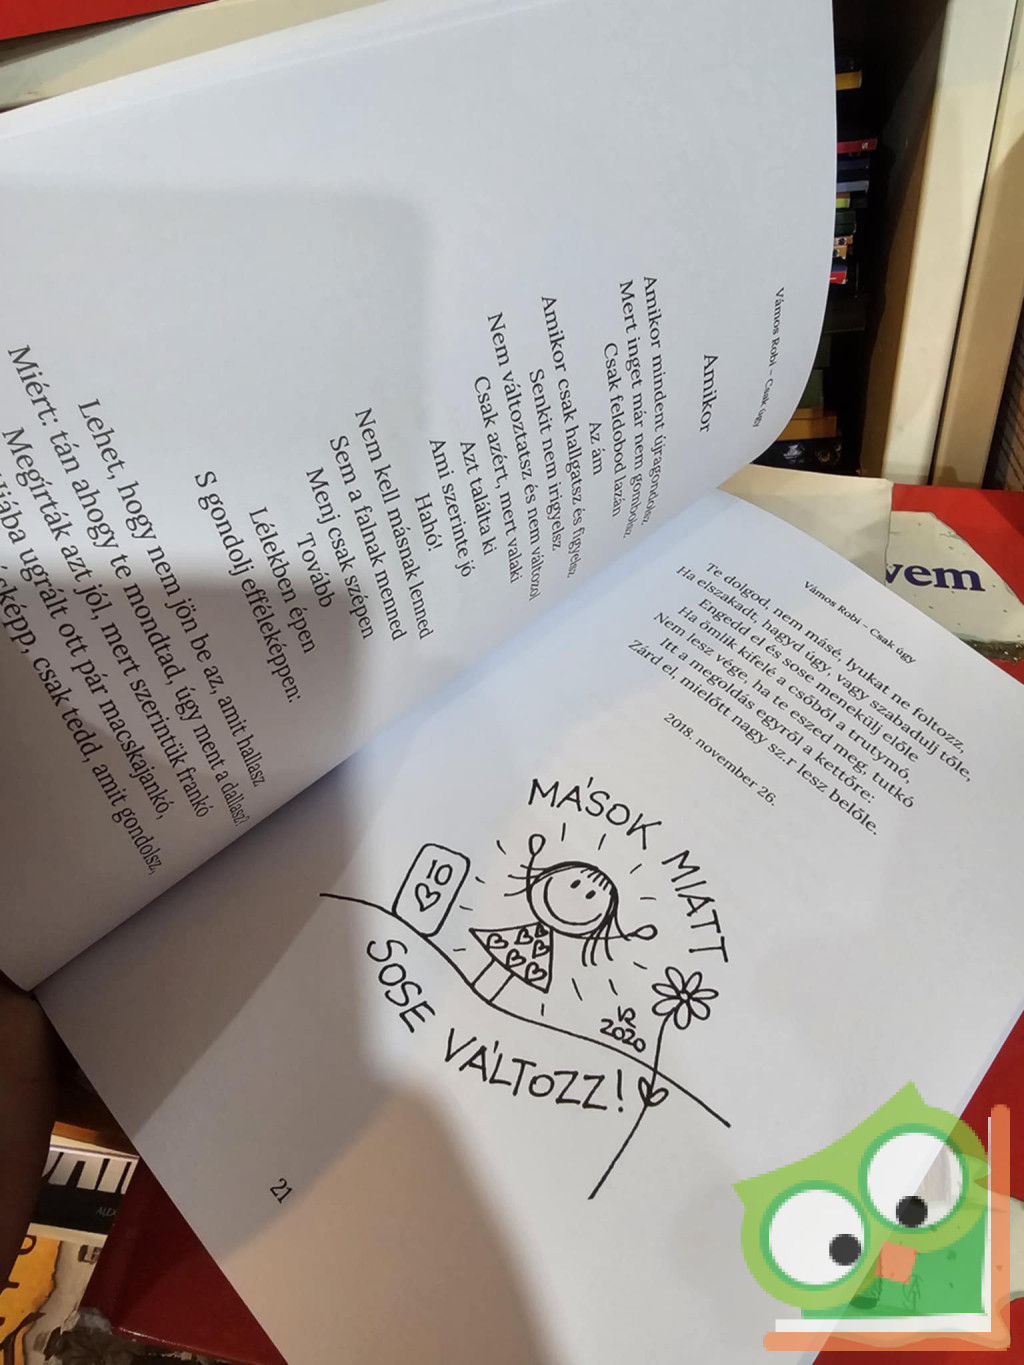 Vámos Robi – Csak úgy
Amikor
Amikor mindent újragondolsz,
Mert inget már nem gombolsz,
Csak feldobod lazán
Az ám
Amikor csak hallgatsz és figyelsz,
Senkit nem irigyelsz
Nem változtatsz és nem változol
Csak azért, mert valaki
Azt találta ki
Ami szerinte jó
Hahó!
Nem kell másnak lenned
Sem a falnak menned
Menj csak szépen
Tovább
Lélekben épen
S gondolj efféleképpen:
Lehet, hogy nem jön be az, amit hallasz
Miért: tán ahogy te mondtad, úgy ment a dallasz?
Megírták azt jól, mert szerintük frankó
ugrált ott pár macskajankó,
csak tedd, amit gondolsz,
Vámos Robi – Csak úgy
Te dolgod, nem másé, lyukat ne foltozz,
Ha elszakadt, hagyd úgy, vagy szabadulj tőle,
Engedd el és sose menekülj előle
Ha ömlik kifelé a csőből a trutymó,
Nem lesz vége, ha te eszed meg, tutkó
Itt a megoldás egyről a kettőre:
Zárd el, mielőtt nagy sz.r lesz belőle.
2018. november 26.
MÁSOK MIATT
10
VR
2020
SOSE VÁLTOZZ!
21
vem
ALEX